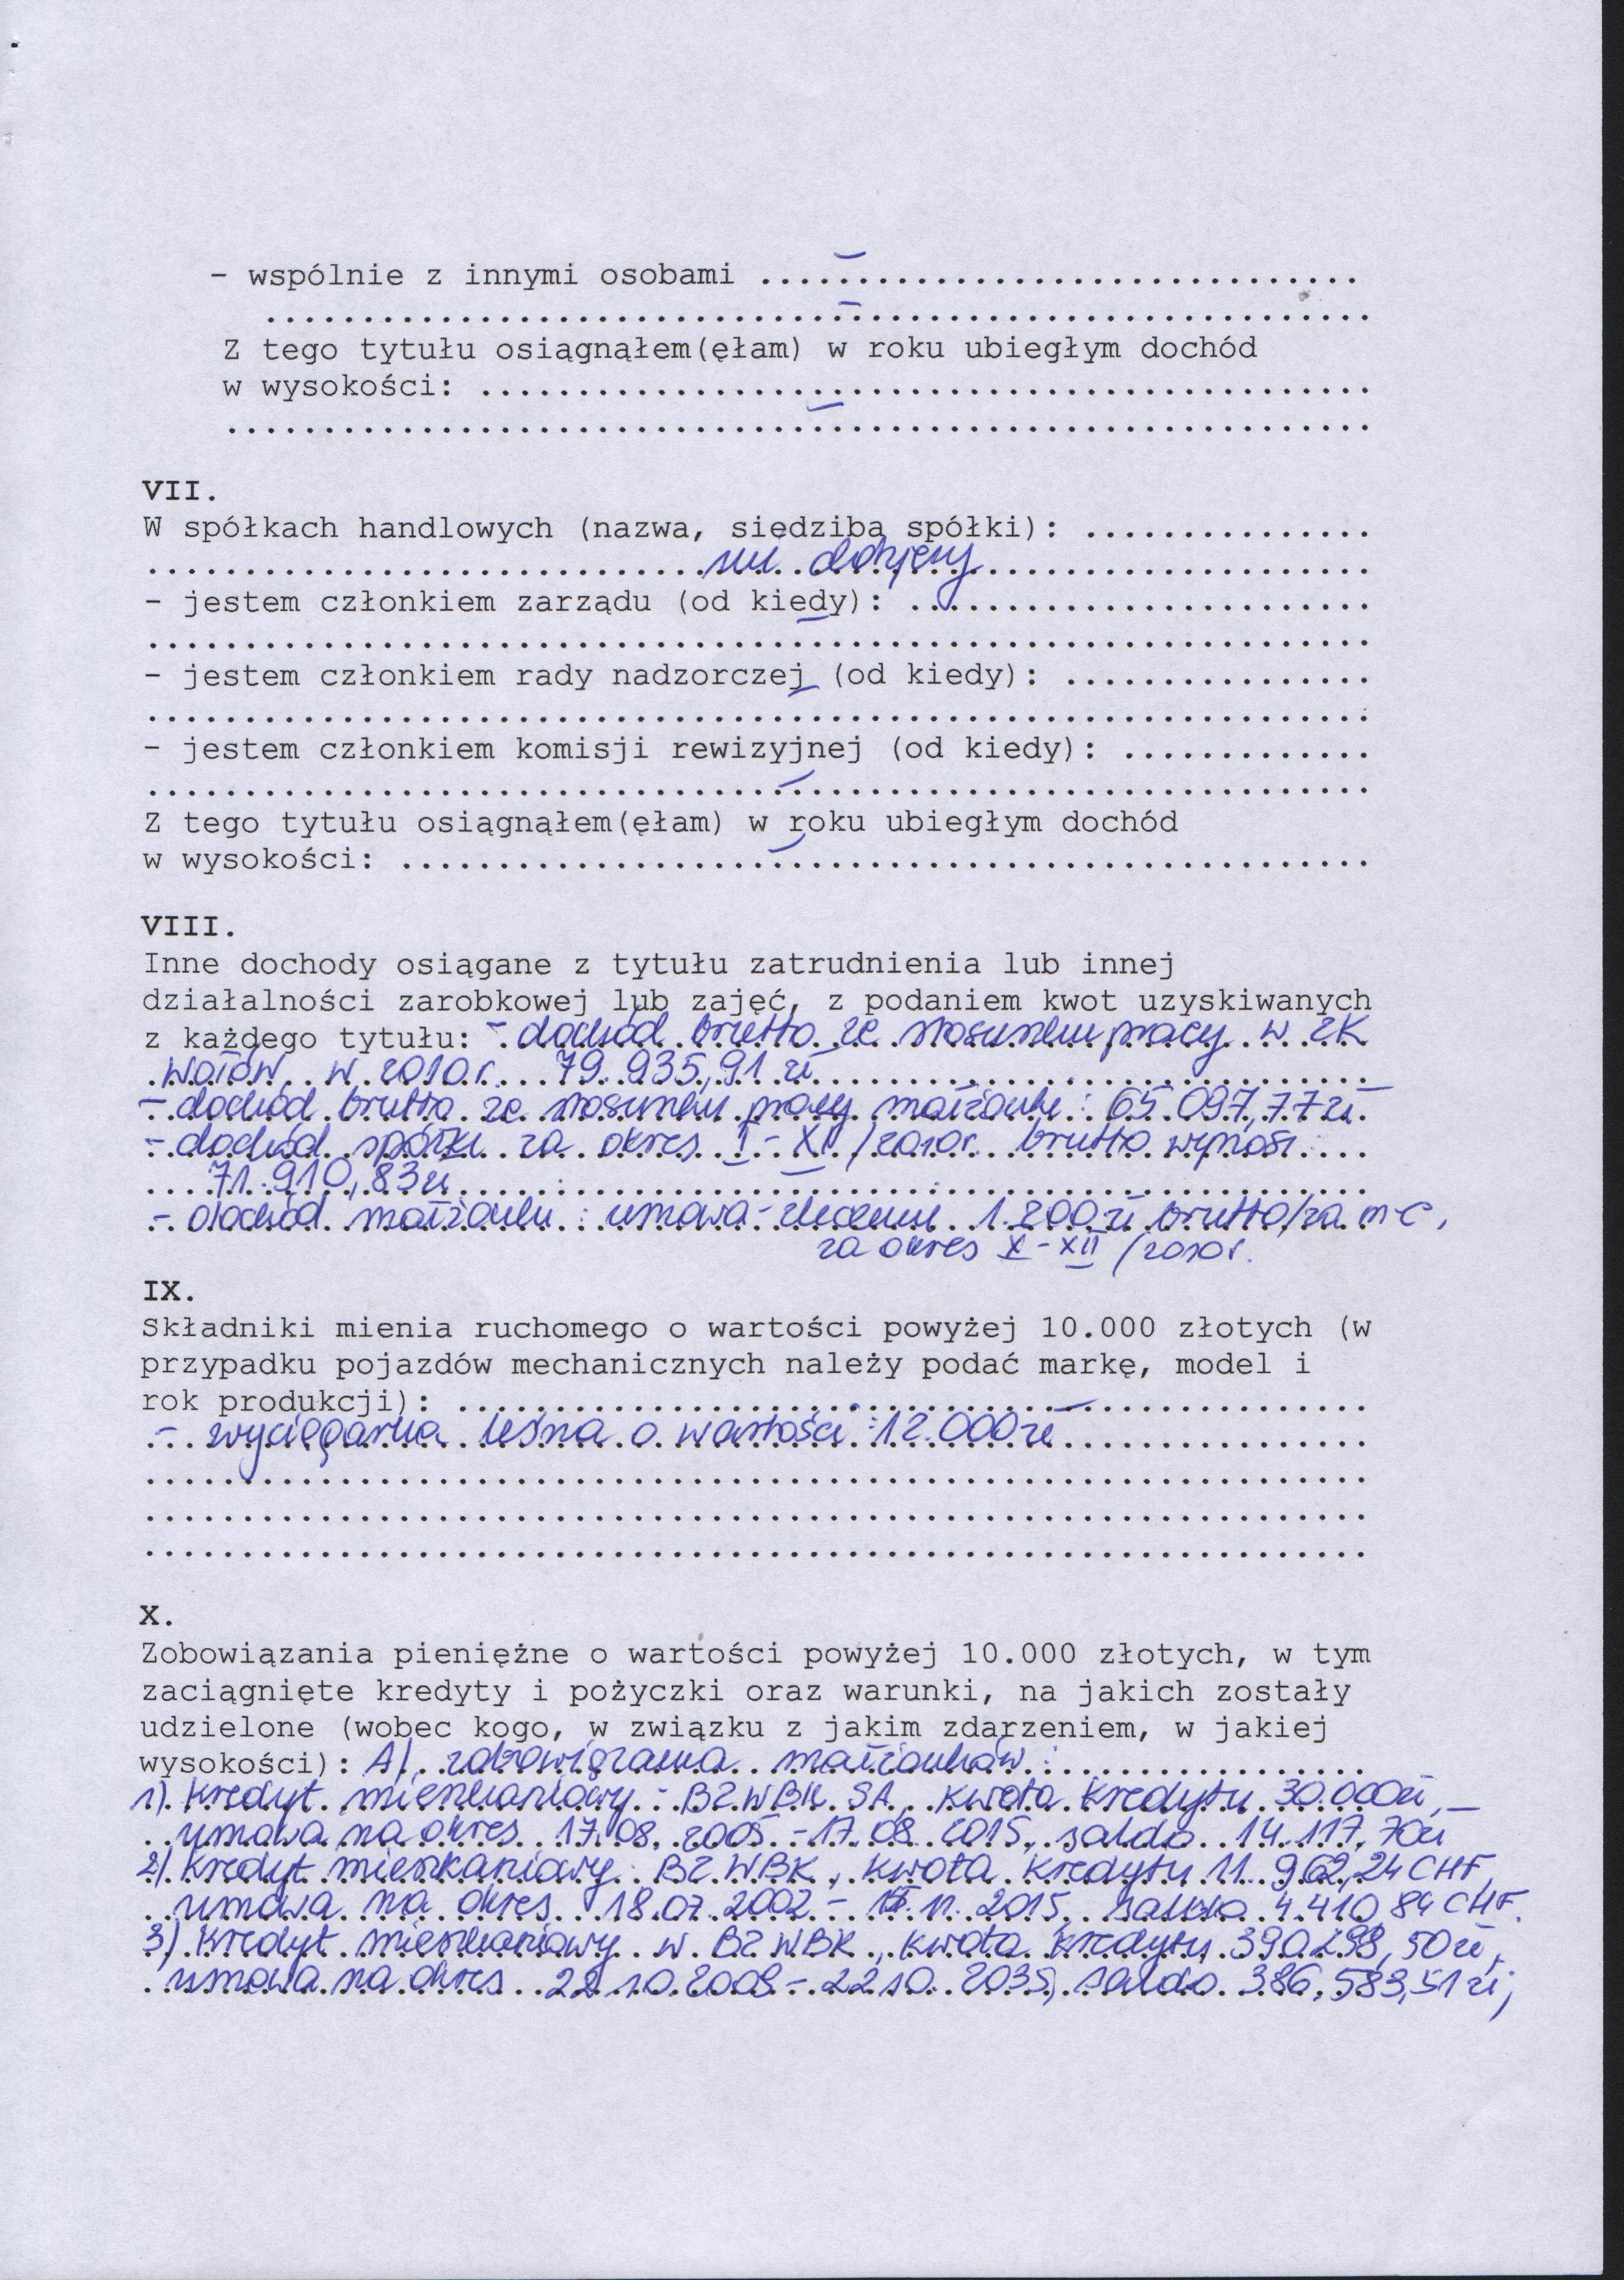 - wspólnie z innymi osobami ..... – .....
..... – .....
Z tego tytułu osiągnąłem(ęłam) w roku ubiegłym dochód
w wysokości: .....
..... – .....
VII.
W spółkach handlowych (nazwa, siedziba spółki): .....
nie dotyczy
- jestem członkiem zarządu (od kiedy): .....
..... – .....
- jestem członkiem rady nadzorczej (od kiedy): .....
..... – .....
- jestem członkiem komisji rewizyjnej (od kiedy): .....
..... – .....
Z tego tytułu osiągnąłem(ęłam) w roku ubiegłym dochód
w wysokości: ..... – .....
VIII.
Inne dochody osiągane z tytułu zatrudnienia lub innej
działalności zarobkowej lub zajęć, z podaniem kwot uzyskiwanych
z każdego tytułu: - dochód brutto ze stosunku pracy w ZK
Wołów w 2010 r. 79.935,91 zł
- dochód brutto ze stosunku pracy małżonki: 65.097,77 zł
- dochód spółki za okres I - XI /2010r. brutto wynosi:
71.910,83 zł
- dochód małżonki: umowa-zlecenie 1.200 zł brutto/za m-c,
za okres X - XII /2010r.
IX.
Składniki mienia ruchomego o wartości powyżej 10.000 złotych (w
przypadku pojazdów mechanicznych należy podać markę, model i
rok produkcji): .....
- wyciągarka leśna o wartości: 12.000 zł
.....
.....
.....
X.
Zobowiązania pieniężne o wartości powyżej 10.000 złotych, w tym
zaciągnięte kredyty i pożyczki oraz warunki, na jakich zostały
udzielone (wobec kogo, w związku z jakim zdarzeniem, w jakiej
wysokości): A/ zobowiązania małżonków:
1). Kredyt mieszkaniowy - BZ WBK SA, kwota kredytu 30.000 zł,
umowa na okres 17.08.2005 - 17.08.2015, saldo 14.117,70 zł
2/. Kredyt mieszkaniowy: BZ WBK, kwota kredytu 11.962,24 CHF,
umowa na okres 18.07.2002 - 11.2015, saldo 4.410,84 CHF.
3). Kredyt mieszkaniowy w BZ WBK, kwota kredytu 390.298,50 zł,
umowa na okres 22.10.2009 - 22.10.2035, saldo 386.583,51 zł;